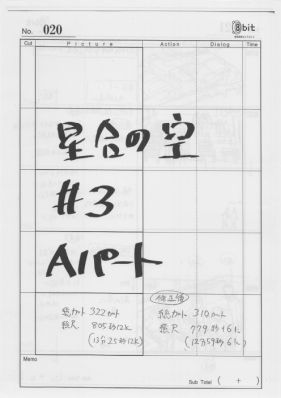 No. 020
8bit
Cut Picture Action Dialog Time
星合の空
#3
Aパート
修正後
総カット 322カット
総尺 805秒12K
(13分25秒12K)
総カット 310カット
総尺 779秒+6K
(12分59秒6K)
Memo
Sub Total ( + )